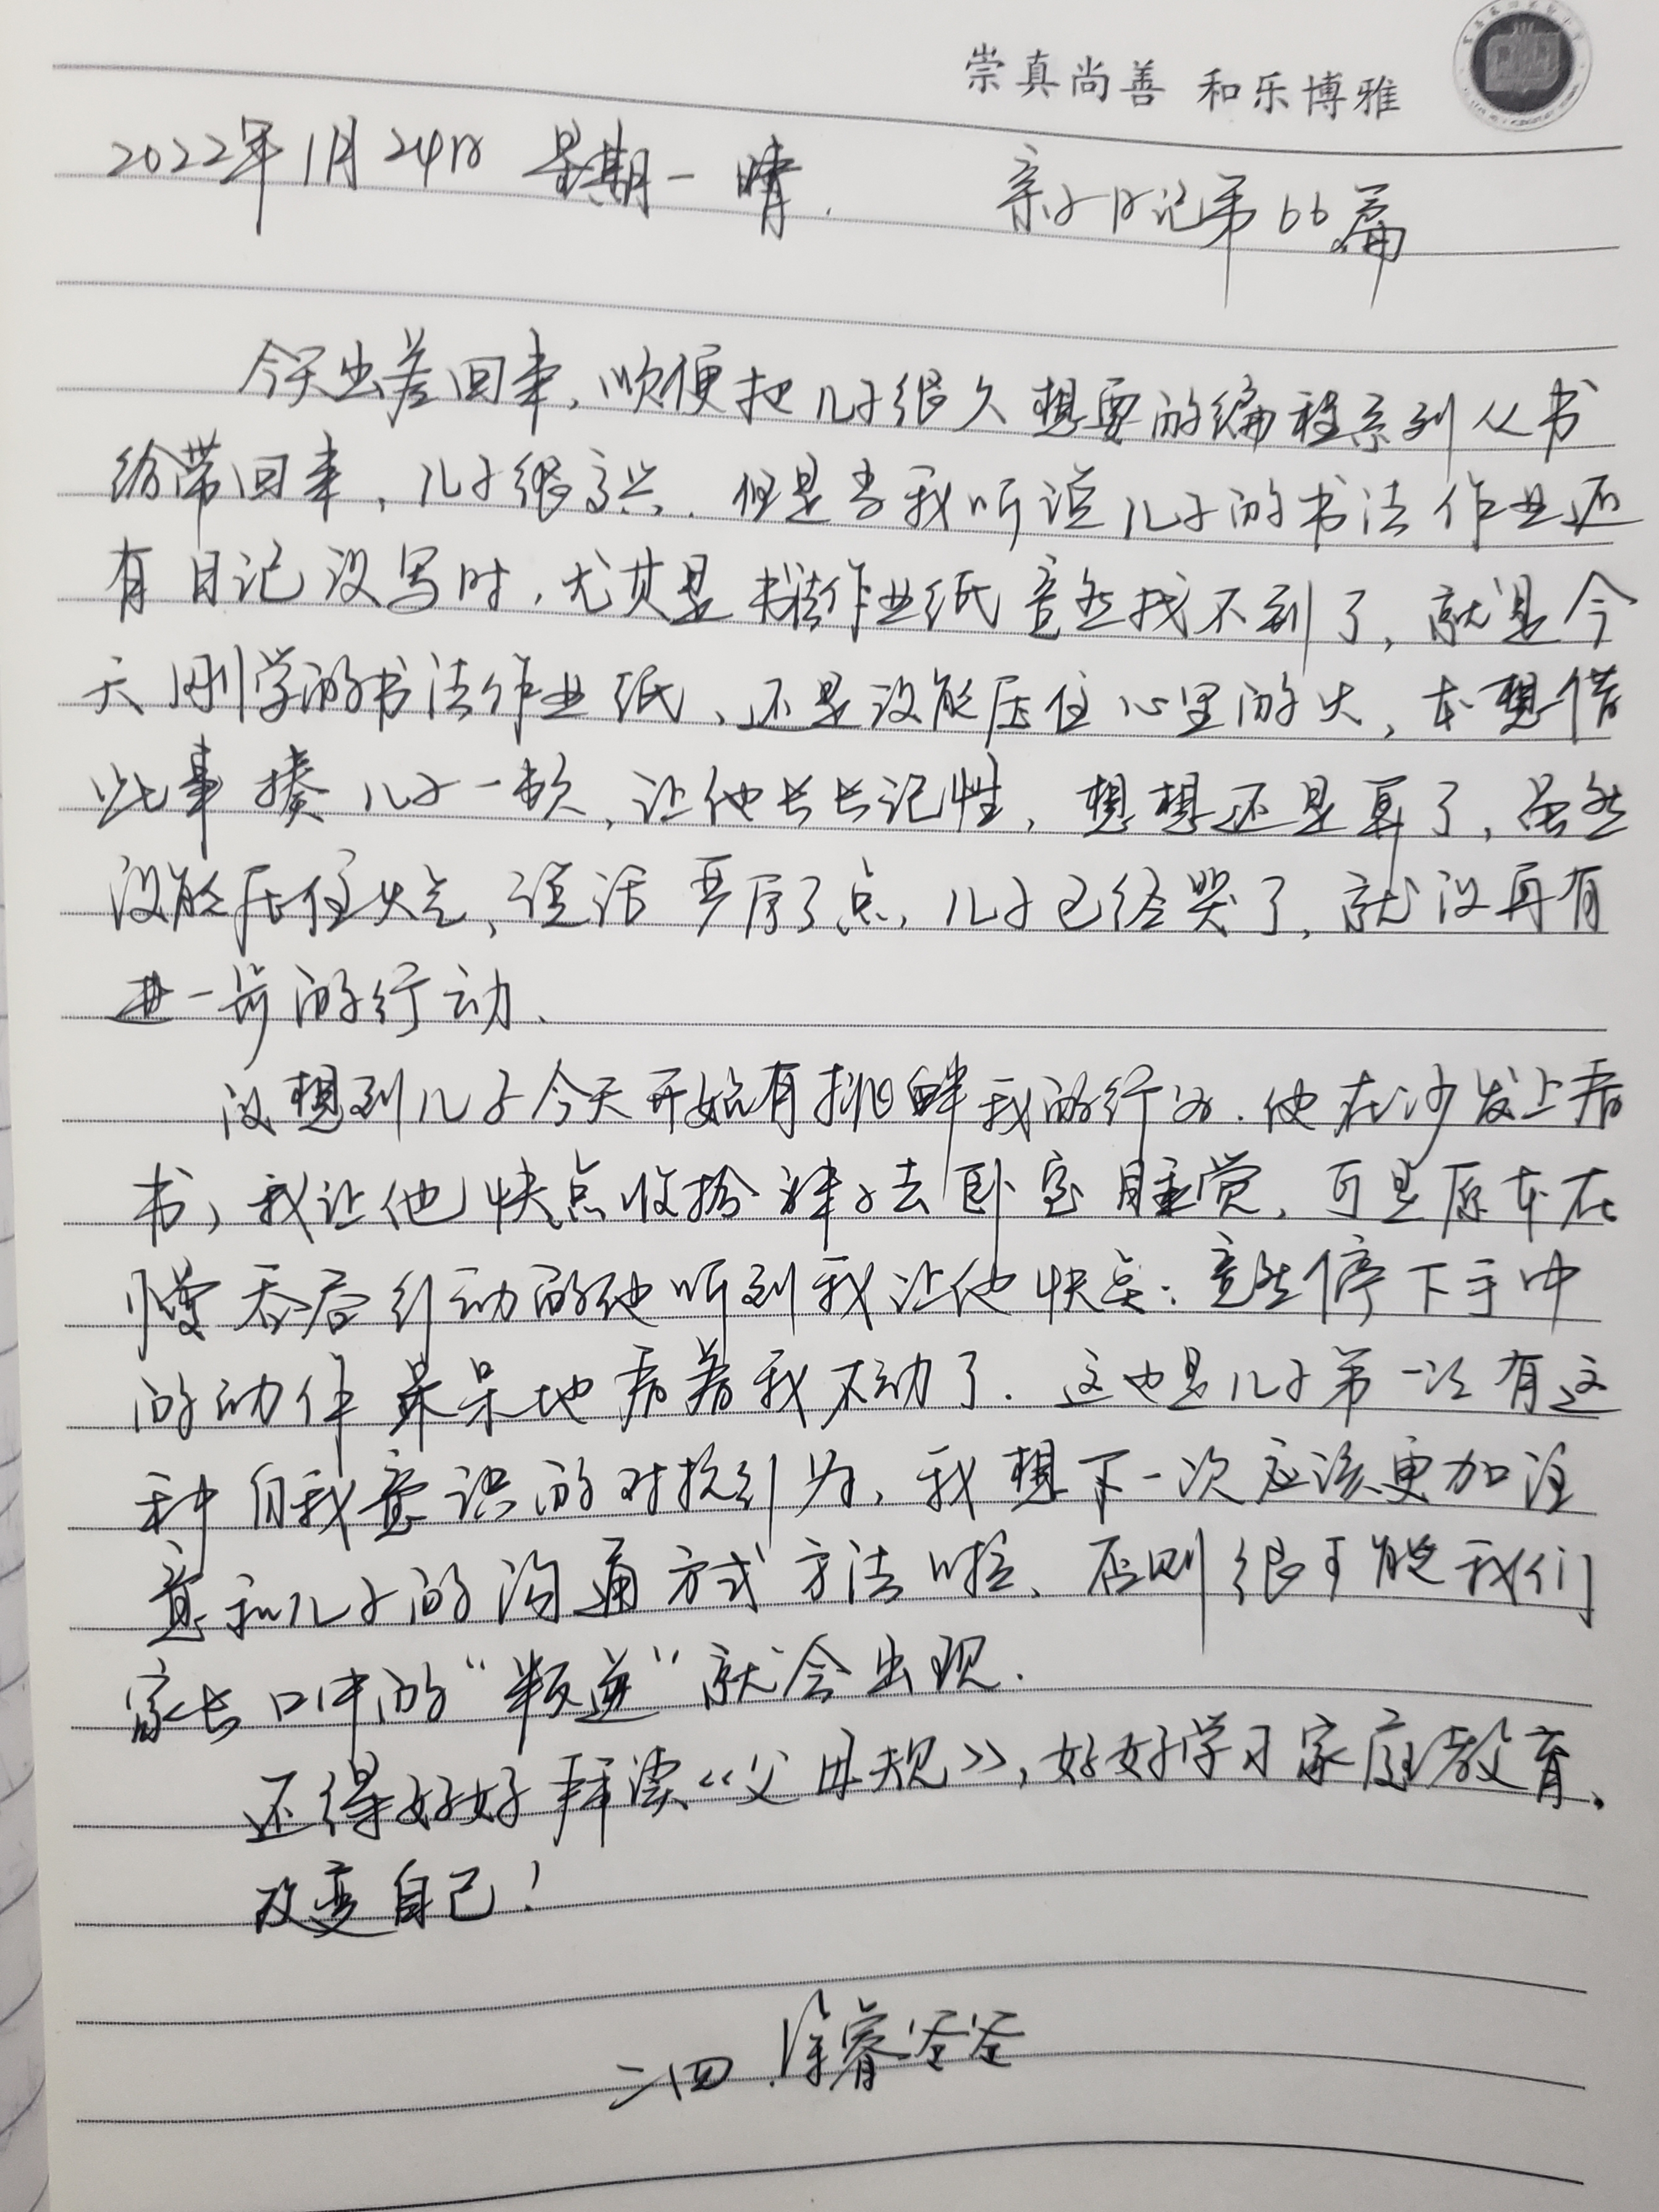 崇真尚善 和乐博雅
2022年1月24日 星期一 晴. 亲子日记第66篇
今天出差回来,顺便把儿子很久想要的编程系列丛书
给带回来,儿子很高兴.但是当我听说儿子的书法作业还
有日记没写时,尤其是书法作业纸竟然找不到了,就是今
天刚学的书法作业纸、还是没能压住心里的火,本想借
此事揍儿子一顿,让他长长记性,想想还是算了,虽然
没能压住火气,说话严厉了点,儿子已经哭了,就没再有
进一步的行动、
没想到儿子今天开始有挑衅我的行为.他在沙发上看
书,我让他快点收拾,去卧室睡觉,可是原本在
慢吞吞行动的他听到我让他快点;竟然停下手中
的动作呆呆地看着我不动了.这也是儿子第一次有这
种自我意识的对抗行为,我想下一次应该更加注
意和儿子的沟通方式方法啦、否则很可能我们
家长口中的"叛逆"就会出现.
还得好好拜读《父母规》,好好学习家庭教育.
改变自己!
二四.徐睿爸爸